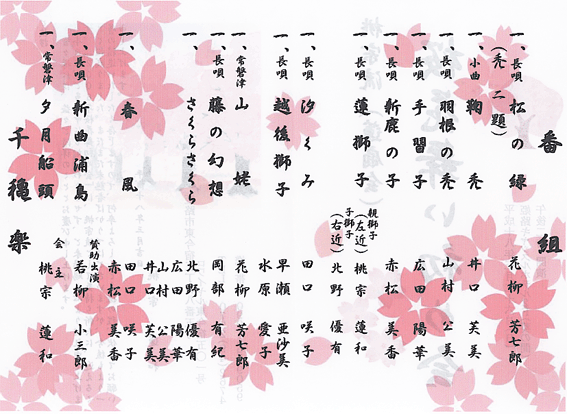 番組
一、長唄 松の緑 花柳 芳七郎
(禿 二題)
一、小曲 鞠 禿 井口 芙美
一、長唄 羽根の禿 山村 公美
一、長唄 手習子 広田 陽華
一、長唄 新鹿の子 赤松 美香
一、長唄 蓮獅子 親獅子(左近) 桃宗 蓮和
子獅子(右近) 北野 優有
一、長唄 汐くみ 田口 咲子
一、長唄 越後獅子 早瀬 亜沙美
水原 愛子
一、常磐津 山姥 花柳 芳七郎
一、長唄 藤の幻想 岡部 有紀
一、さくらさくら 北野 優有
広田 陽華
山村 公美
井口 芙美
一、春風 田口 咲子
赤松 美香
一、長唄 新曲浦島 賛助出演 若柳 小三郎
一、常磐津 夕月船頭 会主 桃宗 蓮和
千穐楽